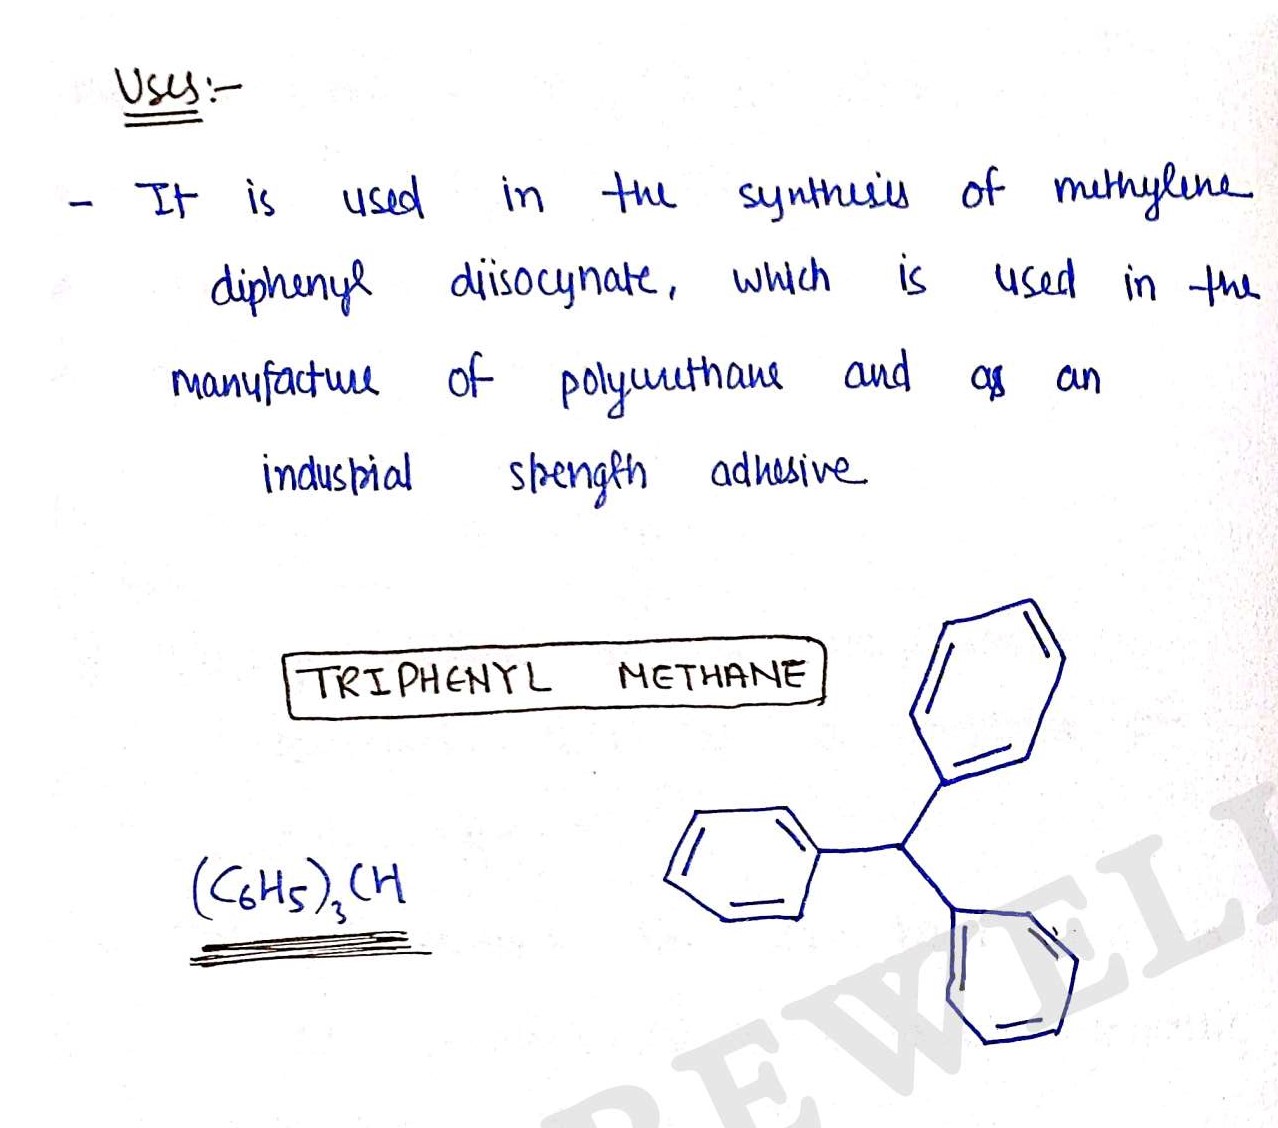 Uses:-
- It is used in the synthesis of methylene
diphenyl diisocynate, which is used in the
manufacture of polyurethane and as an
industrial strength adhesive
TRIPHENYL METHANE
(C6H5)3CH